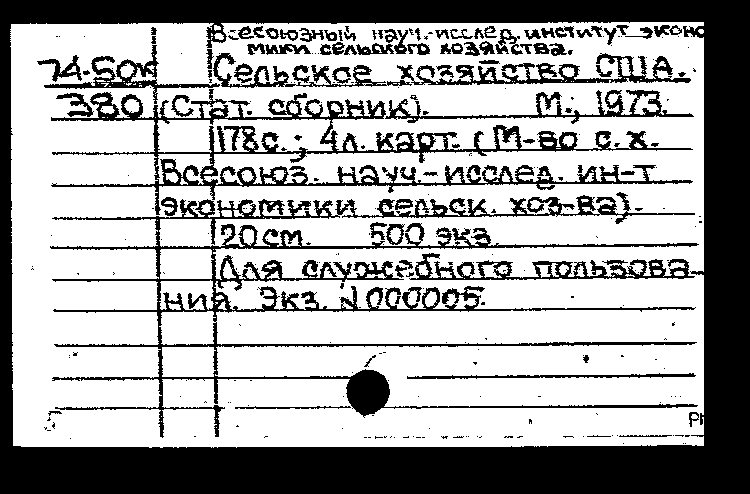 Всесоюзный науч.-исслед. институт эконо
мики сельского хозяйства.
74-50к Сельское хозяйство США.
380 (Стат. сборник). М., 1973.
178с.; 4л. карт. (М-во с. х.
Всесоюз. науч.-исслед. ин-т
экономики сельск. хоз-ва).
20см. 500 экз.
Для служебного пользова-
ния. Экз. №000005.